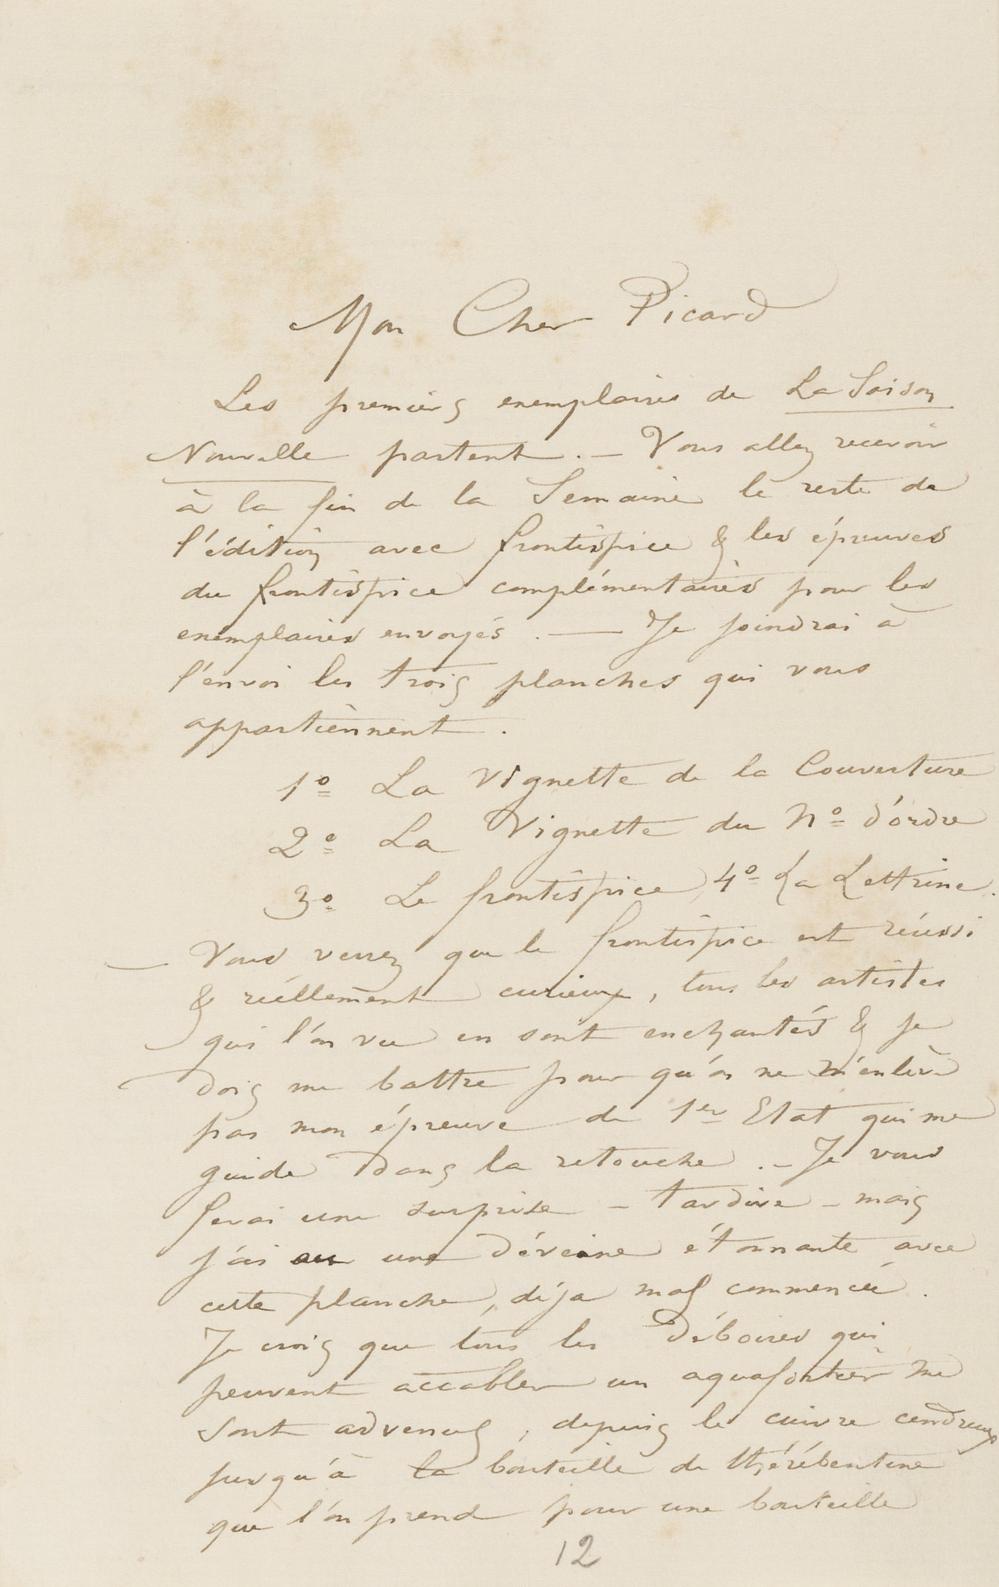 Mon Cher Picard
Les premiers exemplaires de La Saison
Nouvelle partent. — Vous allez recevoir
à la fin de la Semaine le reste de
l'édition avec frontispice & les épreuves
du frontispice complémentaires pour les
exemplaires envoyés. — Je joindrai à
l'envoi les trois planches qui vous
appartiennent.
1º La Vignette de la Couverture
2º La Vignette du Nº d'ordre
3º Le frontispice, 4º La Lettrine.
— Vous verrez que le frontispice est réussi
& réellement curieux, tous les artistes
qui l'on vu en sont enchantés & je
dois me battre pour qu'on ne m'enlève
pas mon épreuve de 1er Etat qui me
guide dans la retouche. — Je vous
ferai une surprise – tardive – mais
j'ai eu une déveine étonnante avec
cette planche, déja mal commencée.
Je crois que tous les déboires qui
peuvent accabler un aquafortier me
sont advenus, depuis le cuivre cendreux
jusqu'à la bouteille de thérébentine
que l'on prend pour une bouteille
12